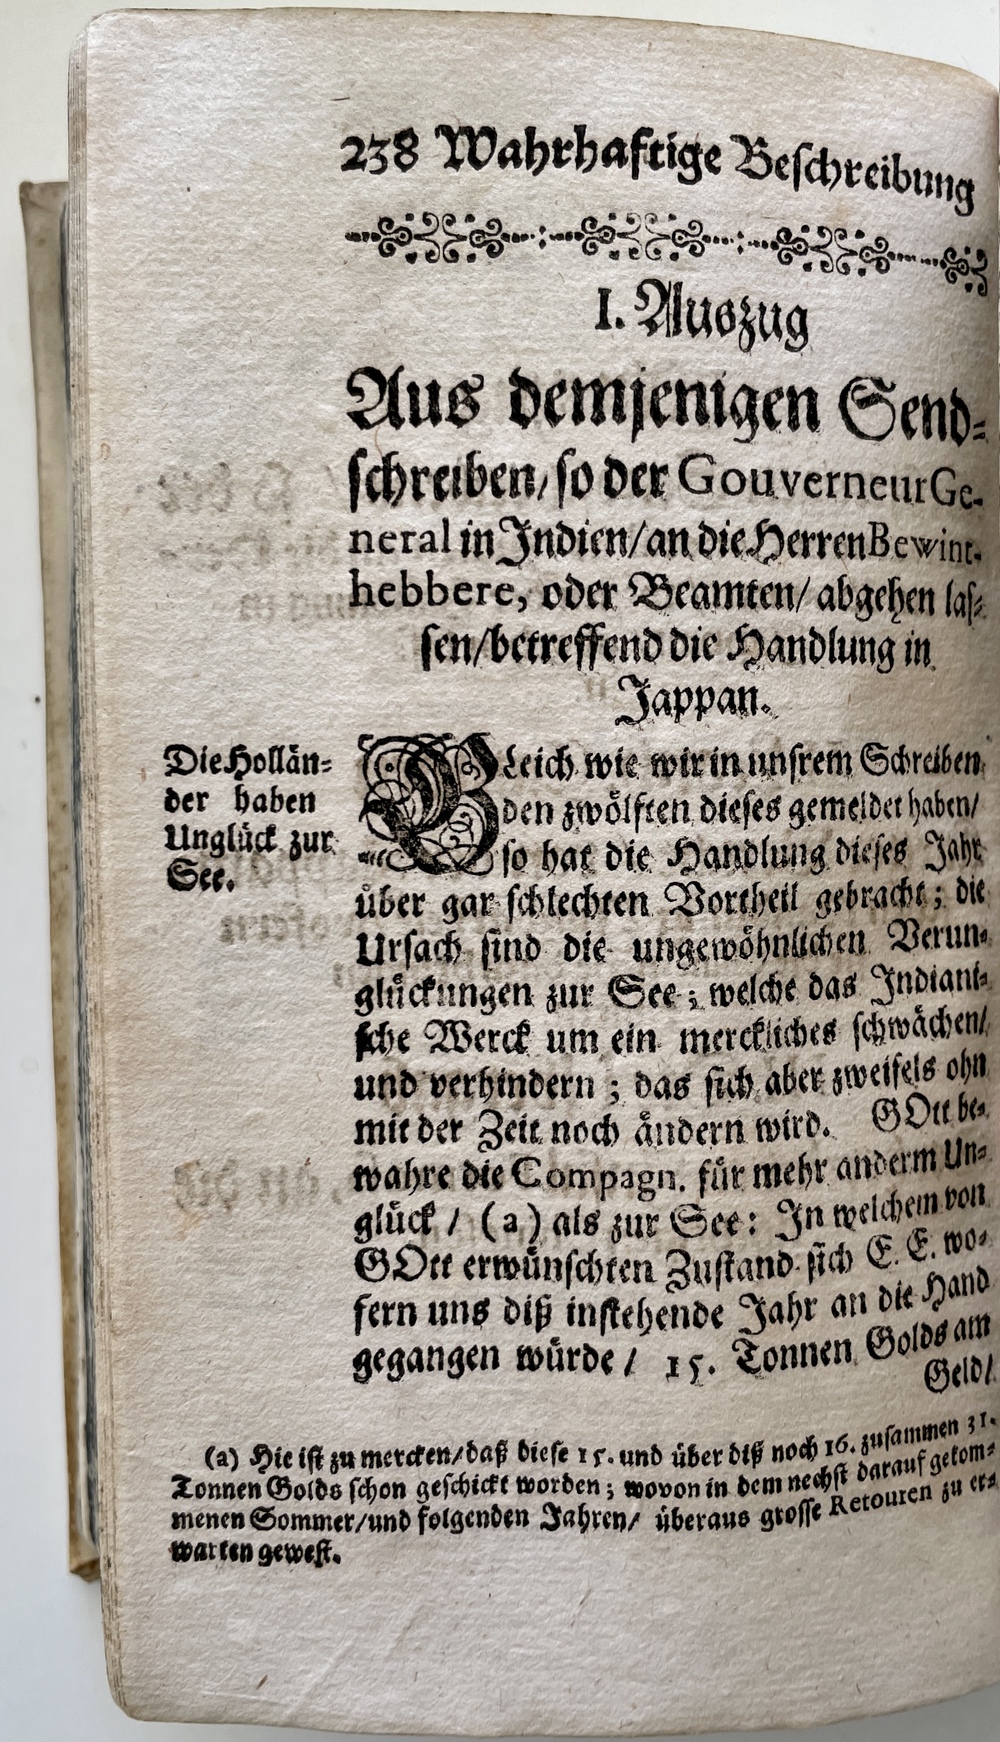 238 Wahrhaftige Beschreibung
I. Auszug
Aus demjenigen Send-
schreiben/ so der Gouverneur Ge-
neral in Indien/ an die Herren Bewint-
hebbere, oder Beamten/ abgehen las-
sen/ betreffend die Handlung in
Jappan.
Die Hollän-
der haben
Unglück zur
See.
GLeich wie wir in unsrem Schreiben
den zwölften dieses gemeldet haben/
so hat die Handlung dieses Jahr
über gar schlechten Vortheil gebracht; die
Ursach sind die ungewöhnlichen Verun-
glückungen zur See; welche das Indiani-
sche Werck um ein merckliches schwächen/
und verhindern; das sich aber zweifels ohn
mit der Zeit noch ändern wird. GOtt be-
wahre die Compagn. für mehr anderm Un-
glück/ (a) als zur See: In welchem von
GOtt erwünschten Zustand sich E. E. wo-
fern uns diß instehende Jahr an die Hand
gegangen würde/ 15. Tonnen Golds am
Geld/
(a) Hie ist zu mercken/ daß diese 15. und über diß noch 16. zusammen 31.
Tonnen Golds schon geschickt worden; wovon in dem nechst darauf gekom-
menen Sommer/ und folgenden Jahren/ überaus grosse Retouren zu er-
warten gewest.